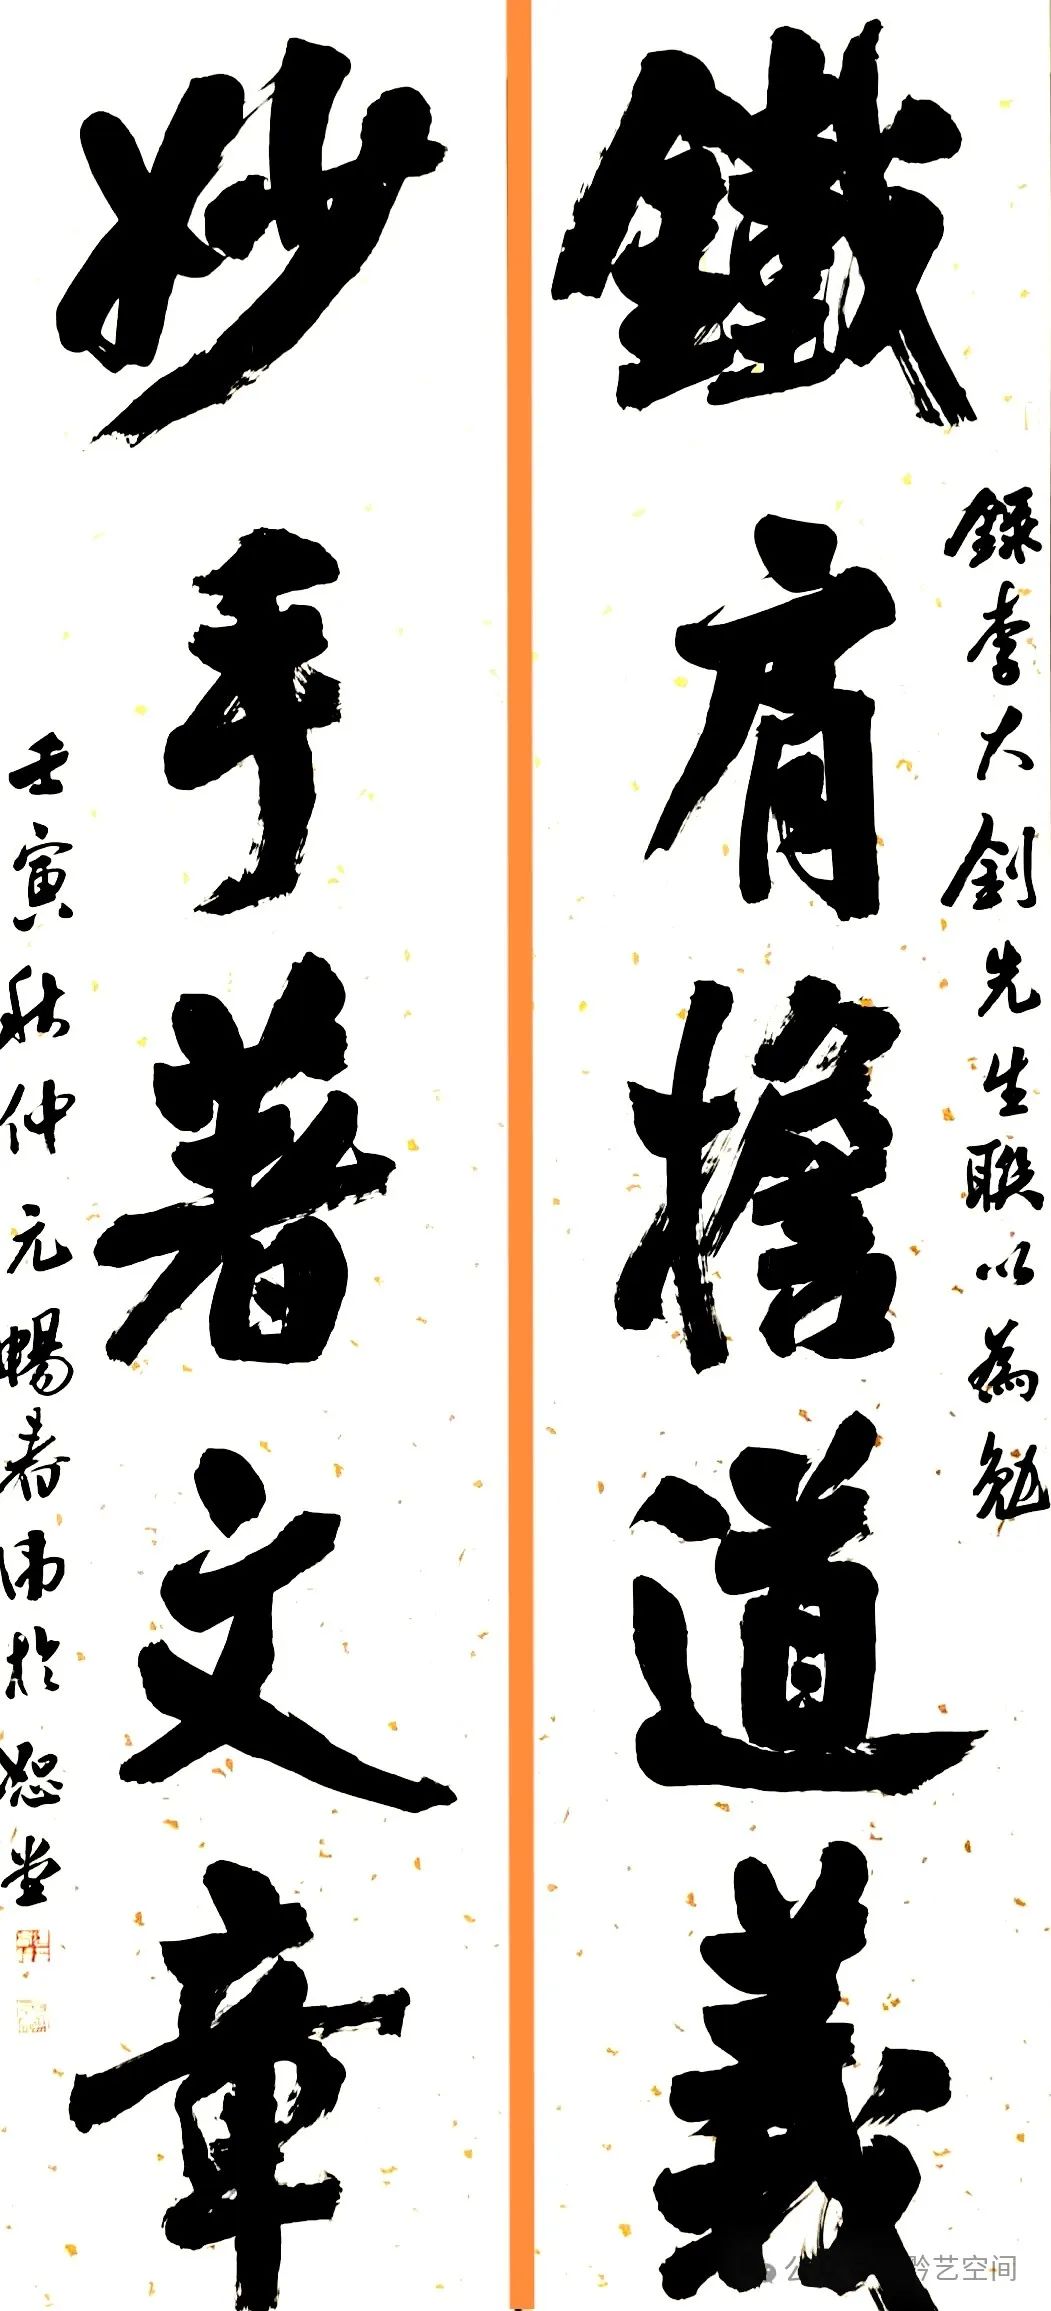 鐵肩擔道義
錄李大釗先生聯以為勉
妙手著文章
壬寅秋仲元暢於恕堂
黔艺空间